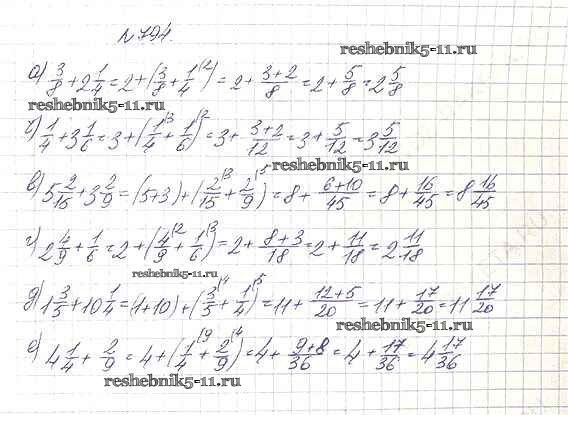 №794.
reshebnik5-11.ru
а) 3/8 + 2 1/4 = 2 + (3/8 + 1/4 |2) = 2 + (3+2)/8 = 2 + 5/8 = 2 5/8
reshebnik5-11.ru
б) 1/4 + 3 1/6 = 3 + (1/4 |3 + 1/6 |2) = 3 + (3+2)/12 = 3 + 5/12 = 3 5/12
reshebnik5-11.ru
в) 5 2/15 + 3 2/9 = (5+3) + (2/15 |3 + 2/9 |5) = 8 + (6+10)/45 = 8 + 16/45 = 8 16/45
г) 2 4/9 + 1/6 = 2 + (4/9 |2 + 1/6 |3) = 2 + (8+3)/18 = 2 + 11/18 = 2 11/18
reshebnik5-11.ru
д) 1 3/5 + 10 1/4 = (1+10) + (3/5 |4 + 1/4 |5) = 11 + (12+5)/20 = 11 + 17/20 = 11 17/20
reshebnik5-11.ru
е) 4 1/4 + 2/9 = 4 + (1/4 |9 + 2/9 |4) = 4 + (9+8)/36 = 4 + 17/36 = 4 17/36
reshebnik5-11.ru